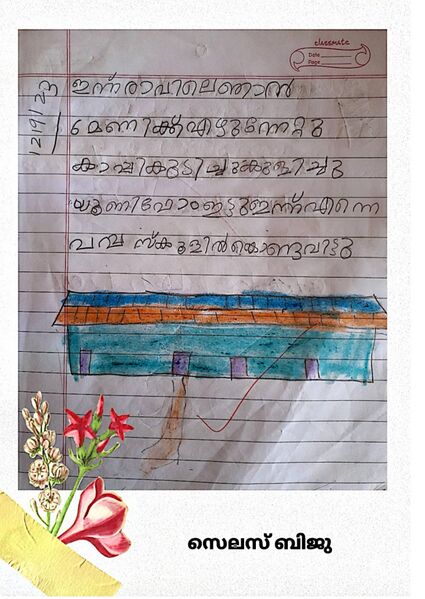 classmate
Date
Page
12/9/23
ഇന്ന് രാവിലെ ഞാൻ
6 മണിക്ക് എഴുന്നേറ്റു
കാപ്പി കുടിച്ചു കുളിച്ചു
യൂണിഫോം ഇട്ടു ഇന്ന് എന്നെ
പപ്പ സ്കൂളിൽ കൊണ്ടുവിട്ടു
സെലസ് ബിജു